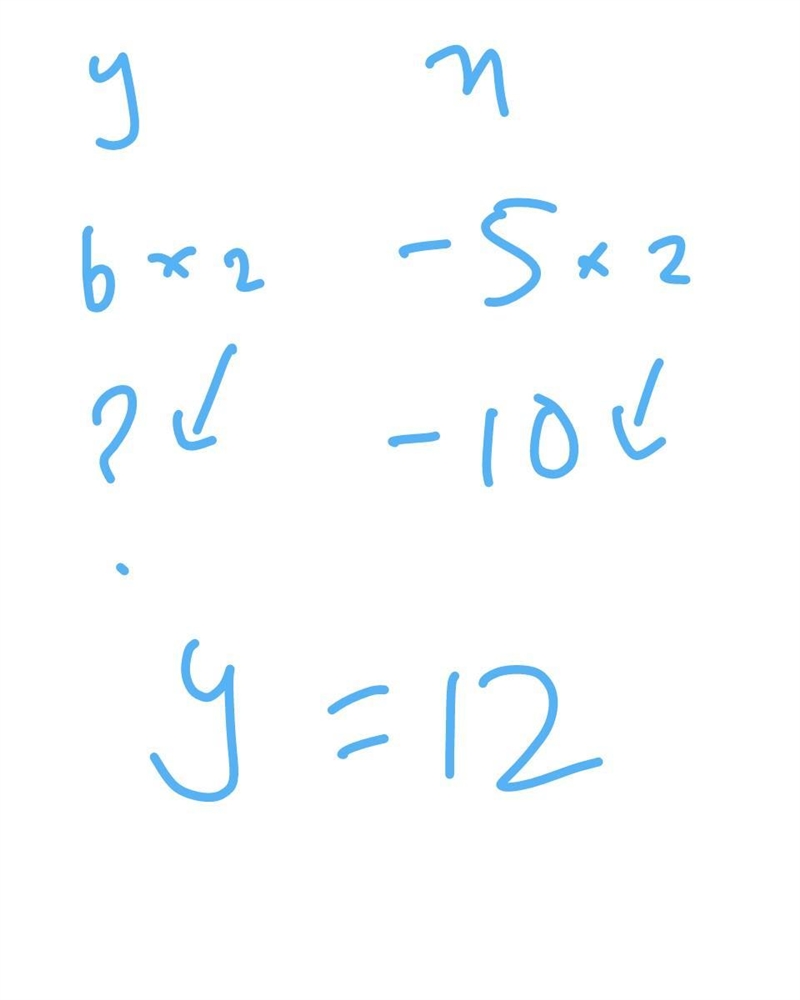 y n
6 × 2 -5 × 2
? ↙ -10 ↙
y = 12